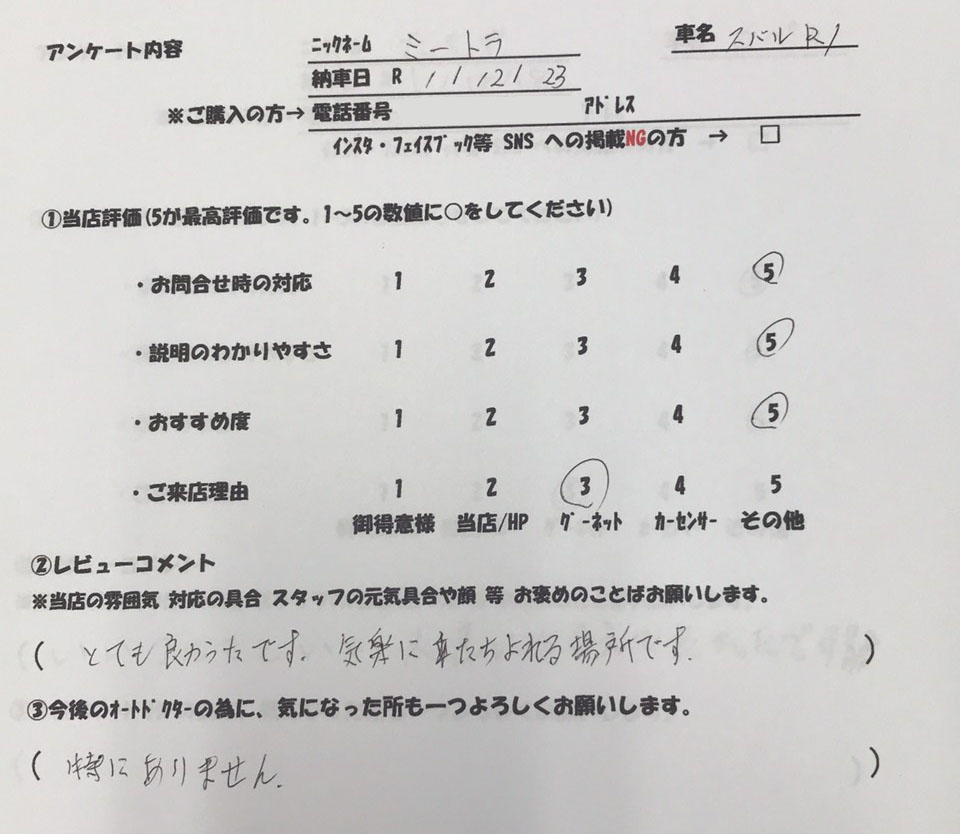 アンケート内容 ニックネーム ミートラ 車名 スバル R1
納車日 R 1 / 12 / 23
※ご購入の方→ 電話番号 アドレス
インスタ・フェイスブック等 SNS への掲載NGの方 → □
①当店評価(5が最高評価です。1～5の数値に○をしてください)
・お問合せ時の対応 1 2 3 4 5
・説明のわかりやすさ 1 2 3 4 5
・おすすめ度 1 2 3 4 5
・ご来店理由 1 2 3 4 5
御得意様 当店/HP グーネット カーセンサー その他
②レビューコメント
※当店の雰囲気 対応の具合 スタッフの元気具合や顔 等 お褒めのことばお願いします。
( とても良かったです。気楽に立ちよれる場所です. )
③今後のオートドクターの為に、気になった所も一つよろしくお願いします。
( 特にありません. )